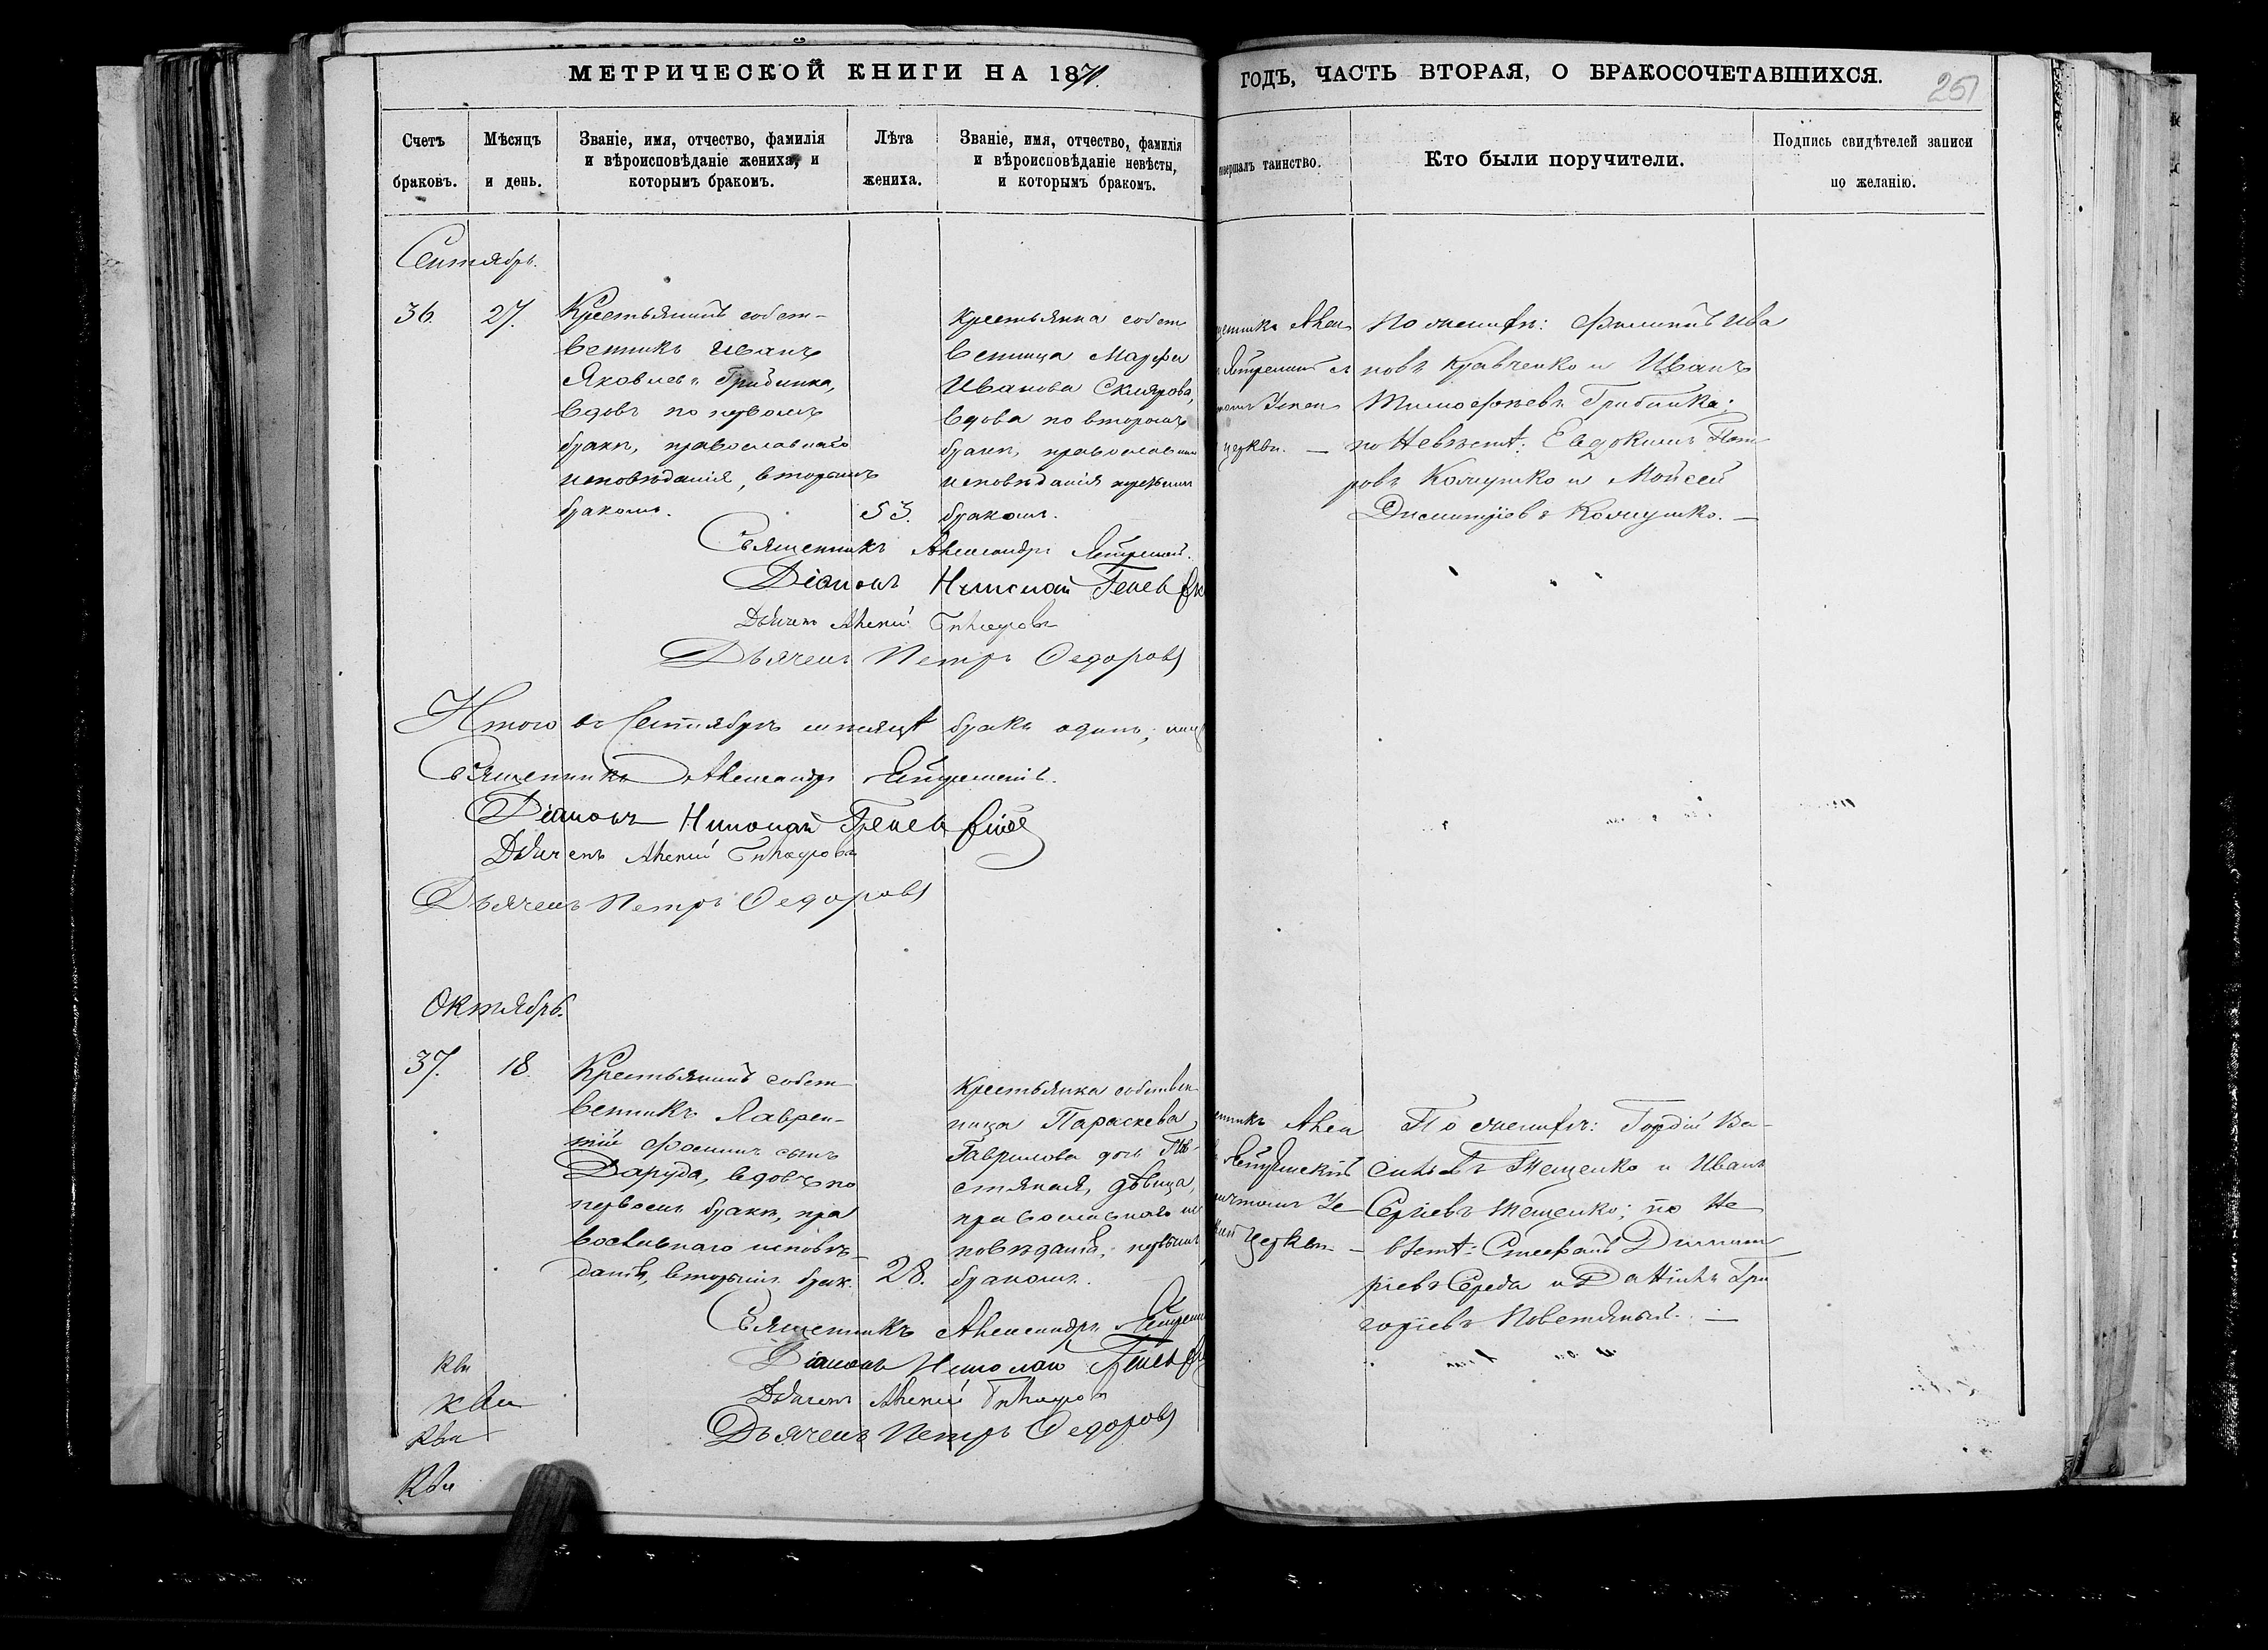 МЕТРИЧЕСКОЙ КНИГИ НА 1871.
ГОДЪ, ЧАСТЬ ВТОРАЯ, О БРАКОСОЧЕТАВШИХСЯ.
251
Счетъ браковъ.
Мѣсяцъ и день.
Званіе, имя, отчество, фамилія
и вѣроисповѣданіе жениха, и
которымъ бракомъ.
Лѣта жениха.
Званіе, имя, отчество, фамилія
и вѣроисповѣданіе невѣсты,
и которымъ бракомъ.
таинство.
Кто были поручители.
Подпись свидѣтелей записи
по желанію.
Сентябрь.
36.
27.
Крестьянинъ собст-
венникъ Иванъ
Яковлевъ Грибинка,
вдовъ по первомъ
бракѣ, православнаго
исповѣданія, вторымъ
бракомъ.
53.
Крестьянка собст
венница Марфа
Иванова Склярова,
вдова по второмъ
бракѣ, православнаго
исповѣданія третьимъ
бракомъ.
церкви. —
По женихѣ: Филиппъ Ива
новъ Кравченко и Иванъ
Тимофѣевъ Грибинка;
по Невѣстѣ: Евдокимъ Пет
ровъ Колпушко и Мойсей
Димитріевъ Колпушко. —
Священникъ Александръ
Діаконъ Николай
Дьячекъ Алексѣй
Дьячекъ Петръ Федоровъ
Итого въ Сентябрѣ мѣсяцѣ бракъ одинъ;
Священникъ Александръ
Діаконъ Николай
Дьячекъ Алексѣй
Дьячекъ Петръ Федоровъ
Октябрь.
37.
18.
Крестьянинъ собст-
венникъ Лаврен-
тій Фоминъ сынъ
Даруда, вдовъ по
первомъ бракѣ, пра
вославнаго исповѣ-
данія, вторымъ брак.
28.
Крестьянка собствен-
ница Параскева
Гаврилова дочь По-
стяная, дѣвица,
православнаго ис
повѣданія, первымъ
бракомъ.
церкви —
По женихѣ: Гордій Ва-
сильевъ Тещенко и Иванъ
Сергіевъ Тещенко; по Не
вѣстѣ: Стефанъ Димит
ріевъ Середа и Даніилъ Гри
горіевъ Повстяный. —
Священникъ Александръ
Діаконъ Николай
Дьячекъ Алексѣй
Дьячекъ Петръ Федоровъ